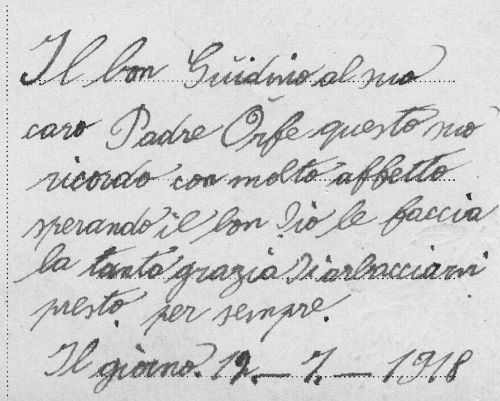 Il bon Guidino al suo
caro Padre Orfe questo suo
ricordo con molto affetto
sperando il bon Dio le faccia
la tanta grazia Di arbacciarvi
presto per sempre.
Il giorno. 19.—7.—1918